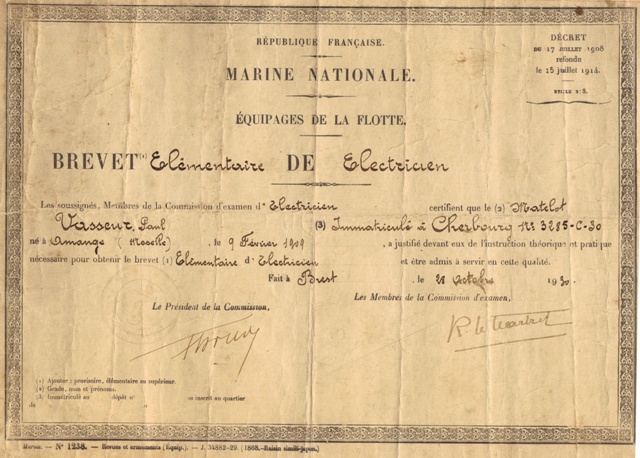 RÉPUBLIQUE FRANÇAISE.
MARINE NATIONALE.
ÉQUIPAGES DE LA FLOTTE.
DÉCRET
DU 17 JUILLET 1908
refondu
le 15 juillet 1914.
BREVET (1) Elémentaire DE Electricien
Les soussignés, Membres de la Commission d'examen d' Electricien certifient que le (2) Matelot
Vasseur, Paul (3) Immatriculé à Cherbourg Nº 3285-C-30
né à Amange (Moselle), le 9 Février 1909, a justifié devant eux de l'instruction théorique et pratique
nécessaire pour obtenir le brevet (1) Elémentaire d'Electricien et être admis à servir en cette qualité.
Fait à Brest, le 21 Octobre 1930.
Le Président de la Commission,
Les Membres de la Commission d'examen,
(1) Ajouter : provisoire, élémentaire ou supérieur.
(2) Grade, nom et prénoms.
(3) Immatriculé au dépôt nº ou inscrit au quartier
de nº
Marine. — Nº 1238. — Revues et armements (Équip.). — J. 34882-29. (1868.-Raisin simili-japon.)